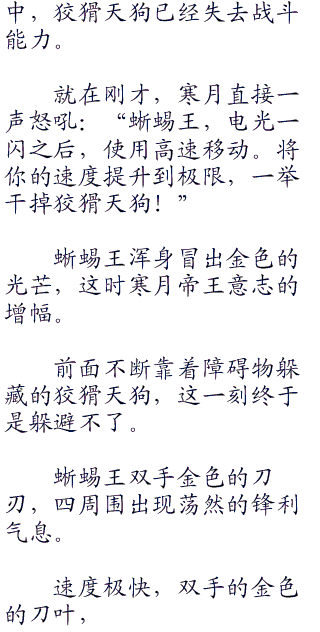 中，狡猾天狗已经失去战斗
能力。
就在刚才，寒月直接一
声怒吼：“蜥蜴王，电光一
闪之后，使用高速移动。将
你的速度提升到极限，一举
干掉狡猾天狗！”
蜥蜴王浑身冒出金色的
光芒，这时寒月帝王意志的
增幅。
前面不断靠着障碍物躲
藏的狡猾天狗，这一刻终于
是躲避不了。
蜥蜴王双手金色的刀
刃，四周围出现荡然的锋利
气息。
速度极快，双手的金色
的刀叶，